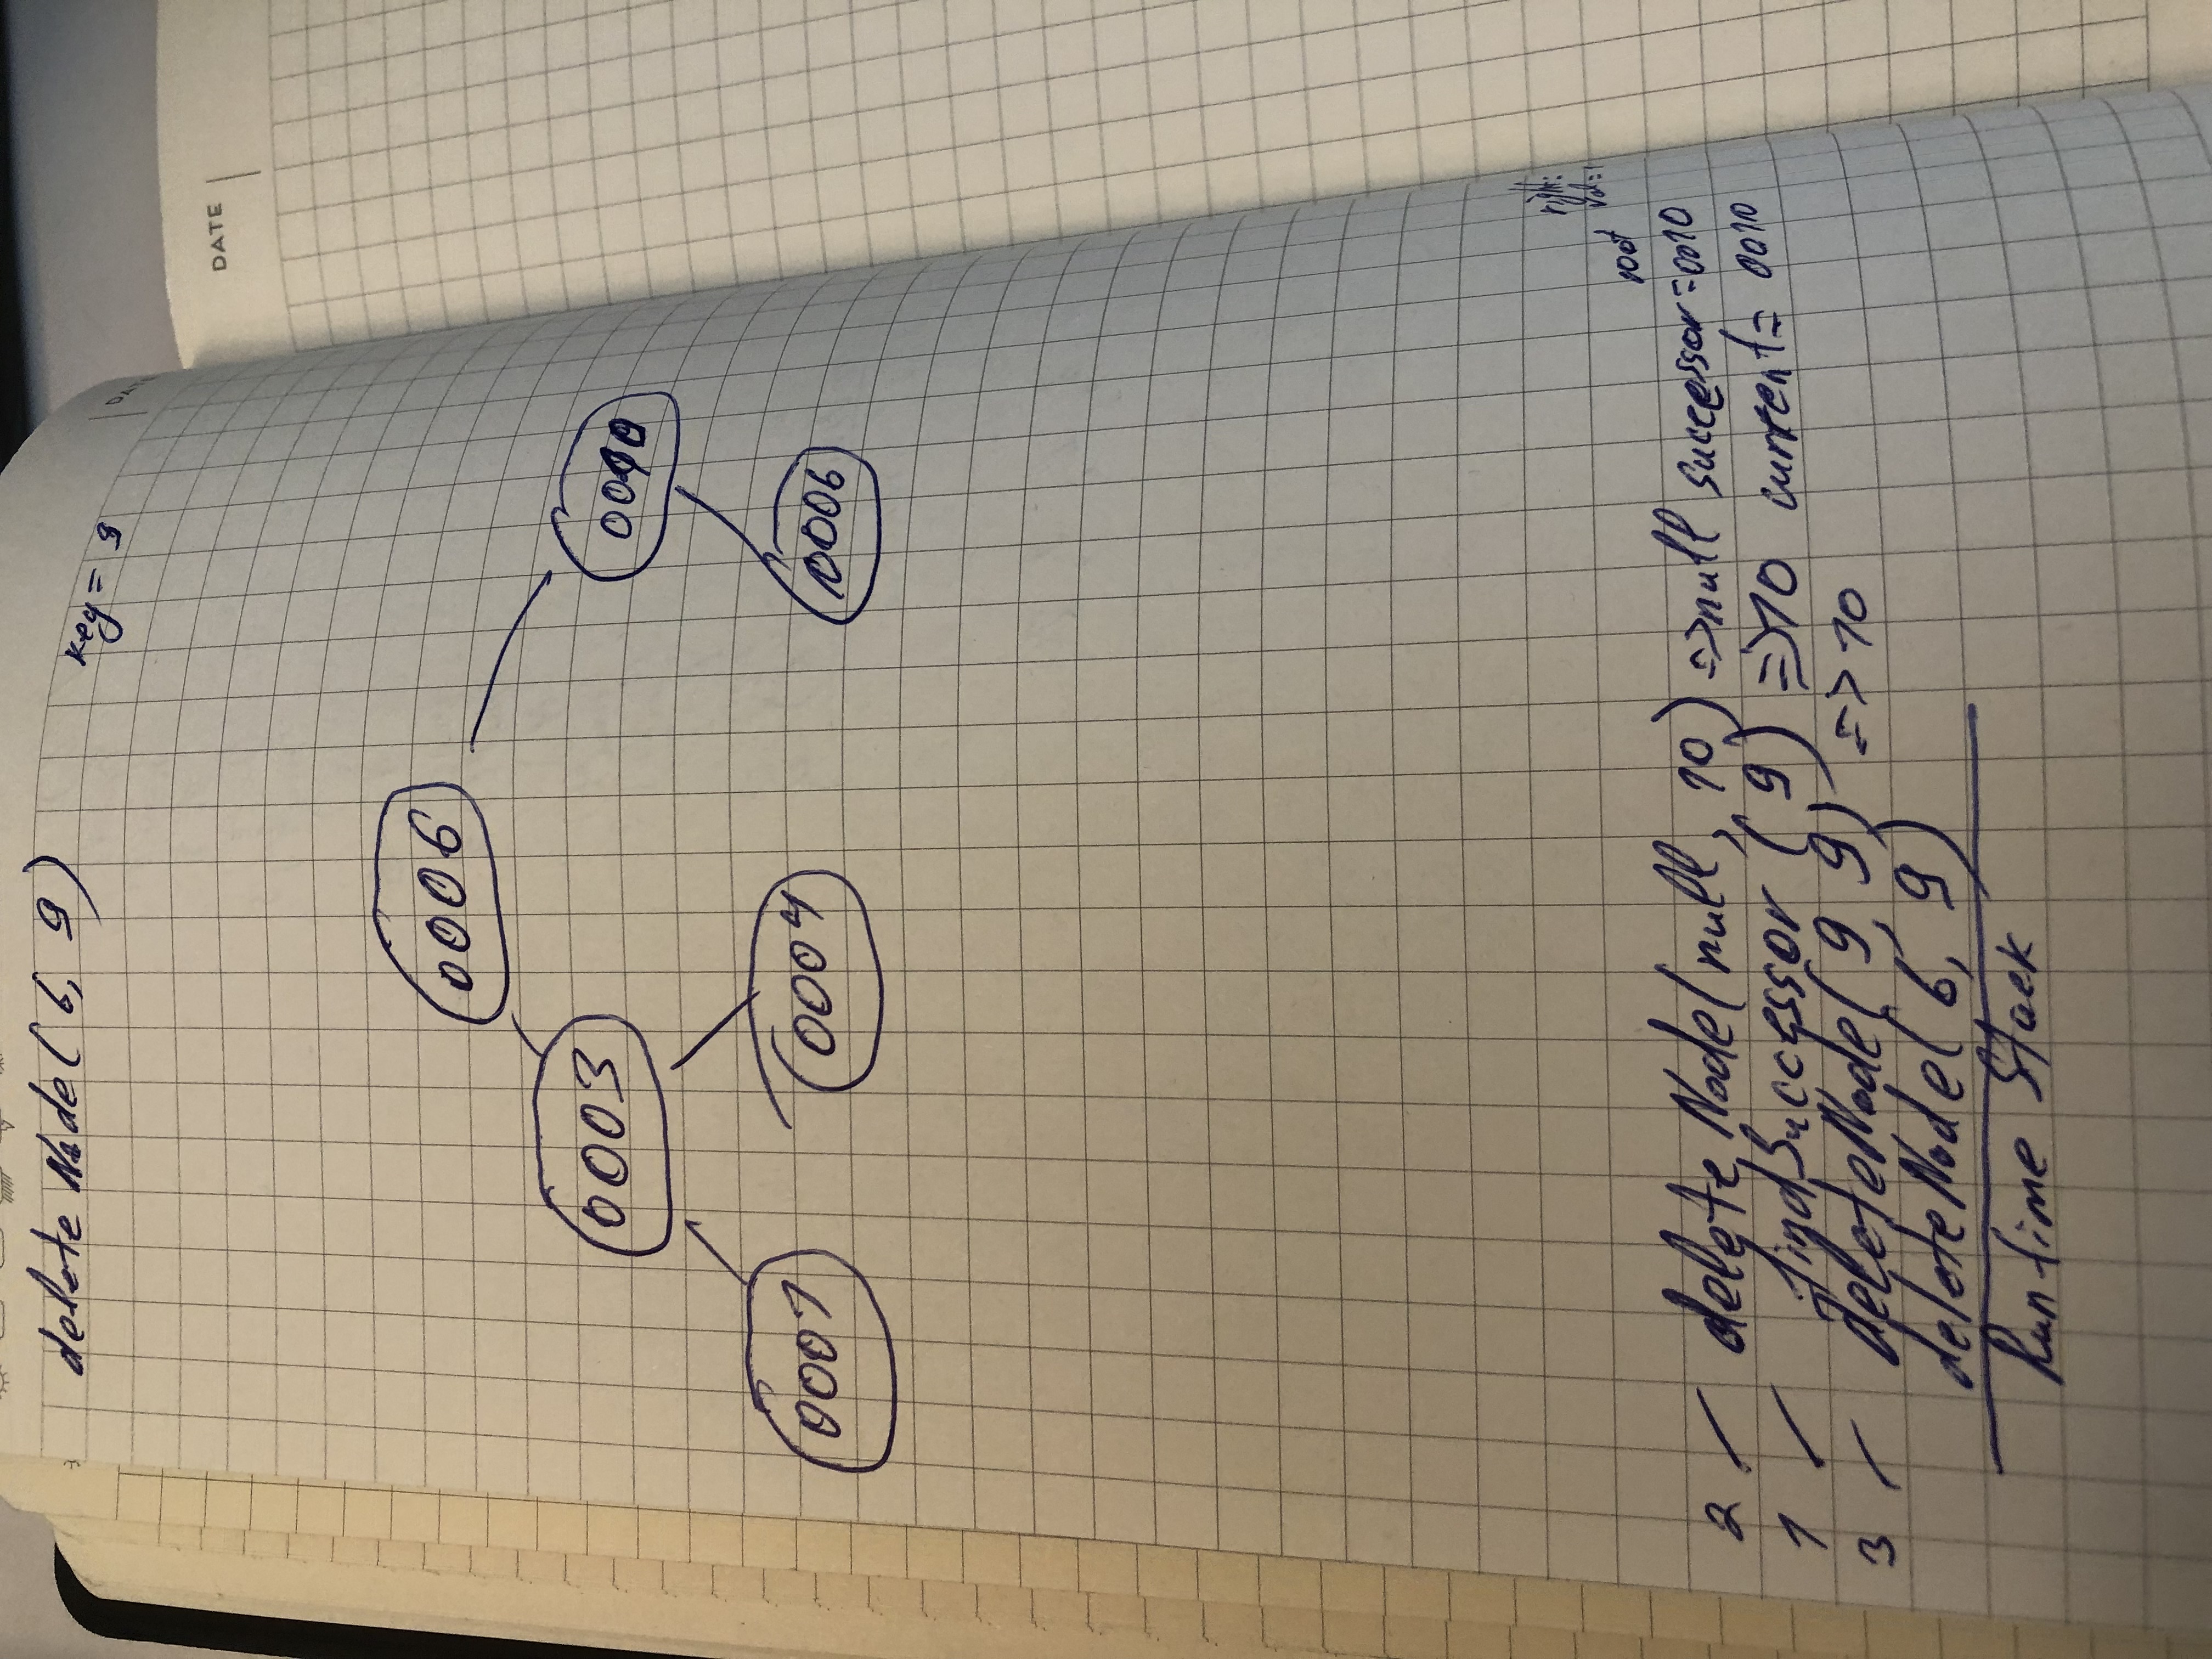 delete Node ( 6, 9 )
key = 9
DATE
0006
0003
0010
0001
0004
0006
right:
val=1
root
2 - delete Node ( null, 10 ) => null successor = 0010
1 - findSuccessor ( 9 ) => 10 current = 0010
3 - deleteNode ( 9, 9 ) => 10
delete Node ( 6, 9 )
Runtime Stack